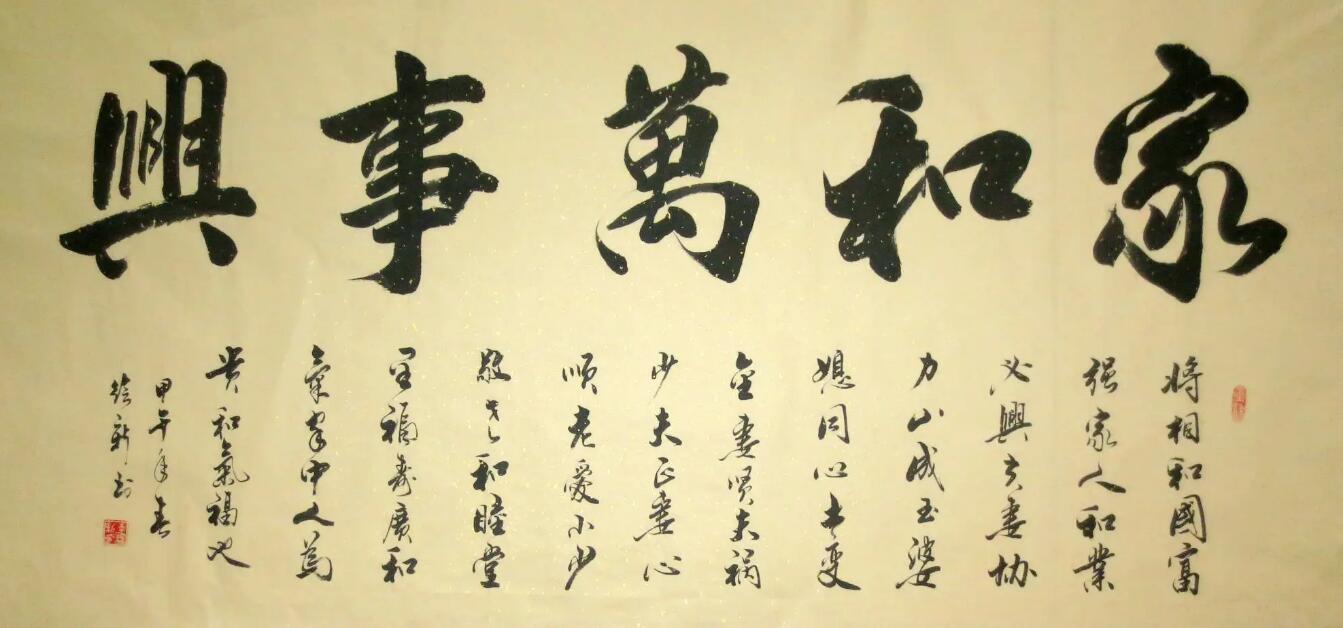 家和萬事興
將相和國富
强家人和業
必興夫妻協
力山成玉婆
媳同心土变
金妻贤夫祸
少夫正妻心
順老愛小少
敬老和睦堂
里福寿廣和
氣家中人為
贵和氣福也
甲午年春
新书